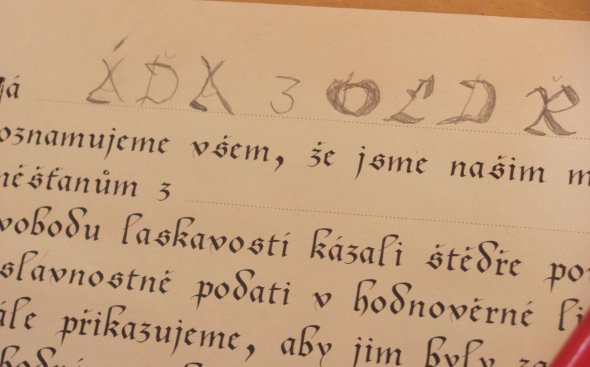 já ÁĎA z OLDŘ
oznamujeme všem, že jsme našim m
měšťanům z
vobodu laskavostí kázali štědře po
slavnostně podati v hodnověrné li
ále přikazujeme, aby jim byly za